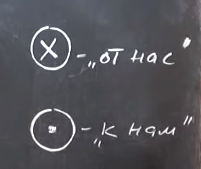 ⊗ - „от нас"
⊙ - „к нам"